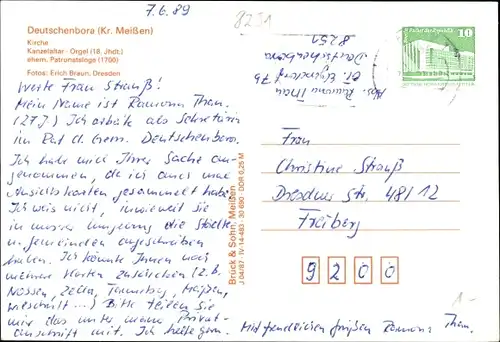 7.6.89
8251
Deutschenbora (Kr. Meißen)
Kirche
Kanzelaltar · Orgel (18. Jhdt.)
ehem. Patronatsloge (1700)
Fotos: Erich Braun, Dresden
Werte Frau Strauß!
Mein Name ist Ramona Tham.
(27 J.) Ich arbeite als Sekretärin
im Rat d. Gem. Deutschenbora.
Ich habe mich Ihrer Sache an-
genommen, da ich auch mal
Ansichtskarten gesammelt habe.
Ich weis nicht, inwieweit sie
in unserer Umgebung die Städte
u. Gemeinden angeschrieben
haben. Ich könnte Ihnen noch
meinen Karten zuschicken (z.b.
Nossen, Zella, Tanneberg, Meißen,
Wilschnitt...) Bitte teilen Sie
mir das unter meine Privat-
anschrift mit. Ich helfe gern.
Mit freundlichen Grüßen Ramona Tham.
Brück & Sohn, Meißen
J 04/87 · IV-14-483 · 30 690 · DDR 0,25 M
Abs. Ramona Tham
7b
Deutschenbora
8251
10
Frau
Christine Strauß
Dresdner Str. 48/12
Freiberg
9200
1.-